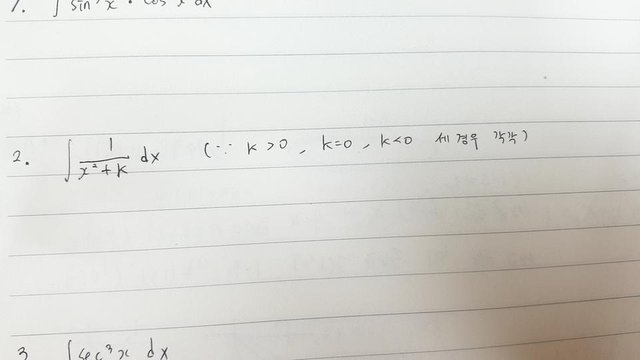 1. ∫ sin x · cos x dx
2. ∫ 1/(x²+k) dx (∵ k>0, k=0, k<0 세 경우 각각)
3. ∫ sec³x dx